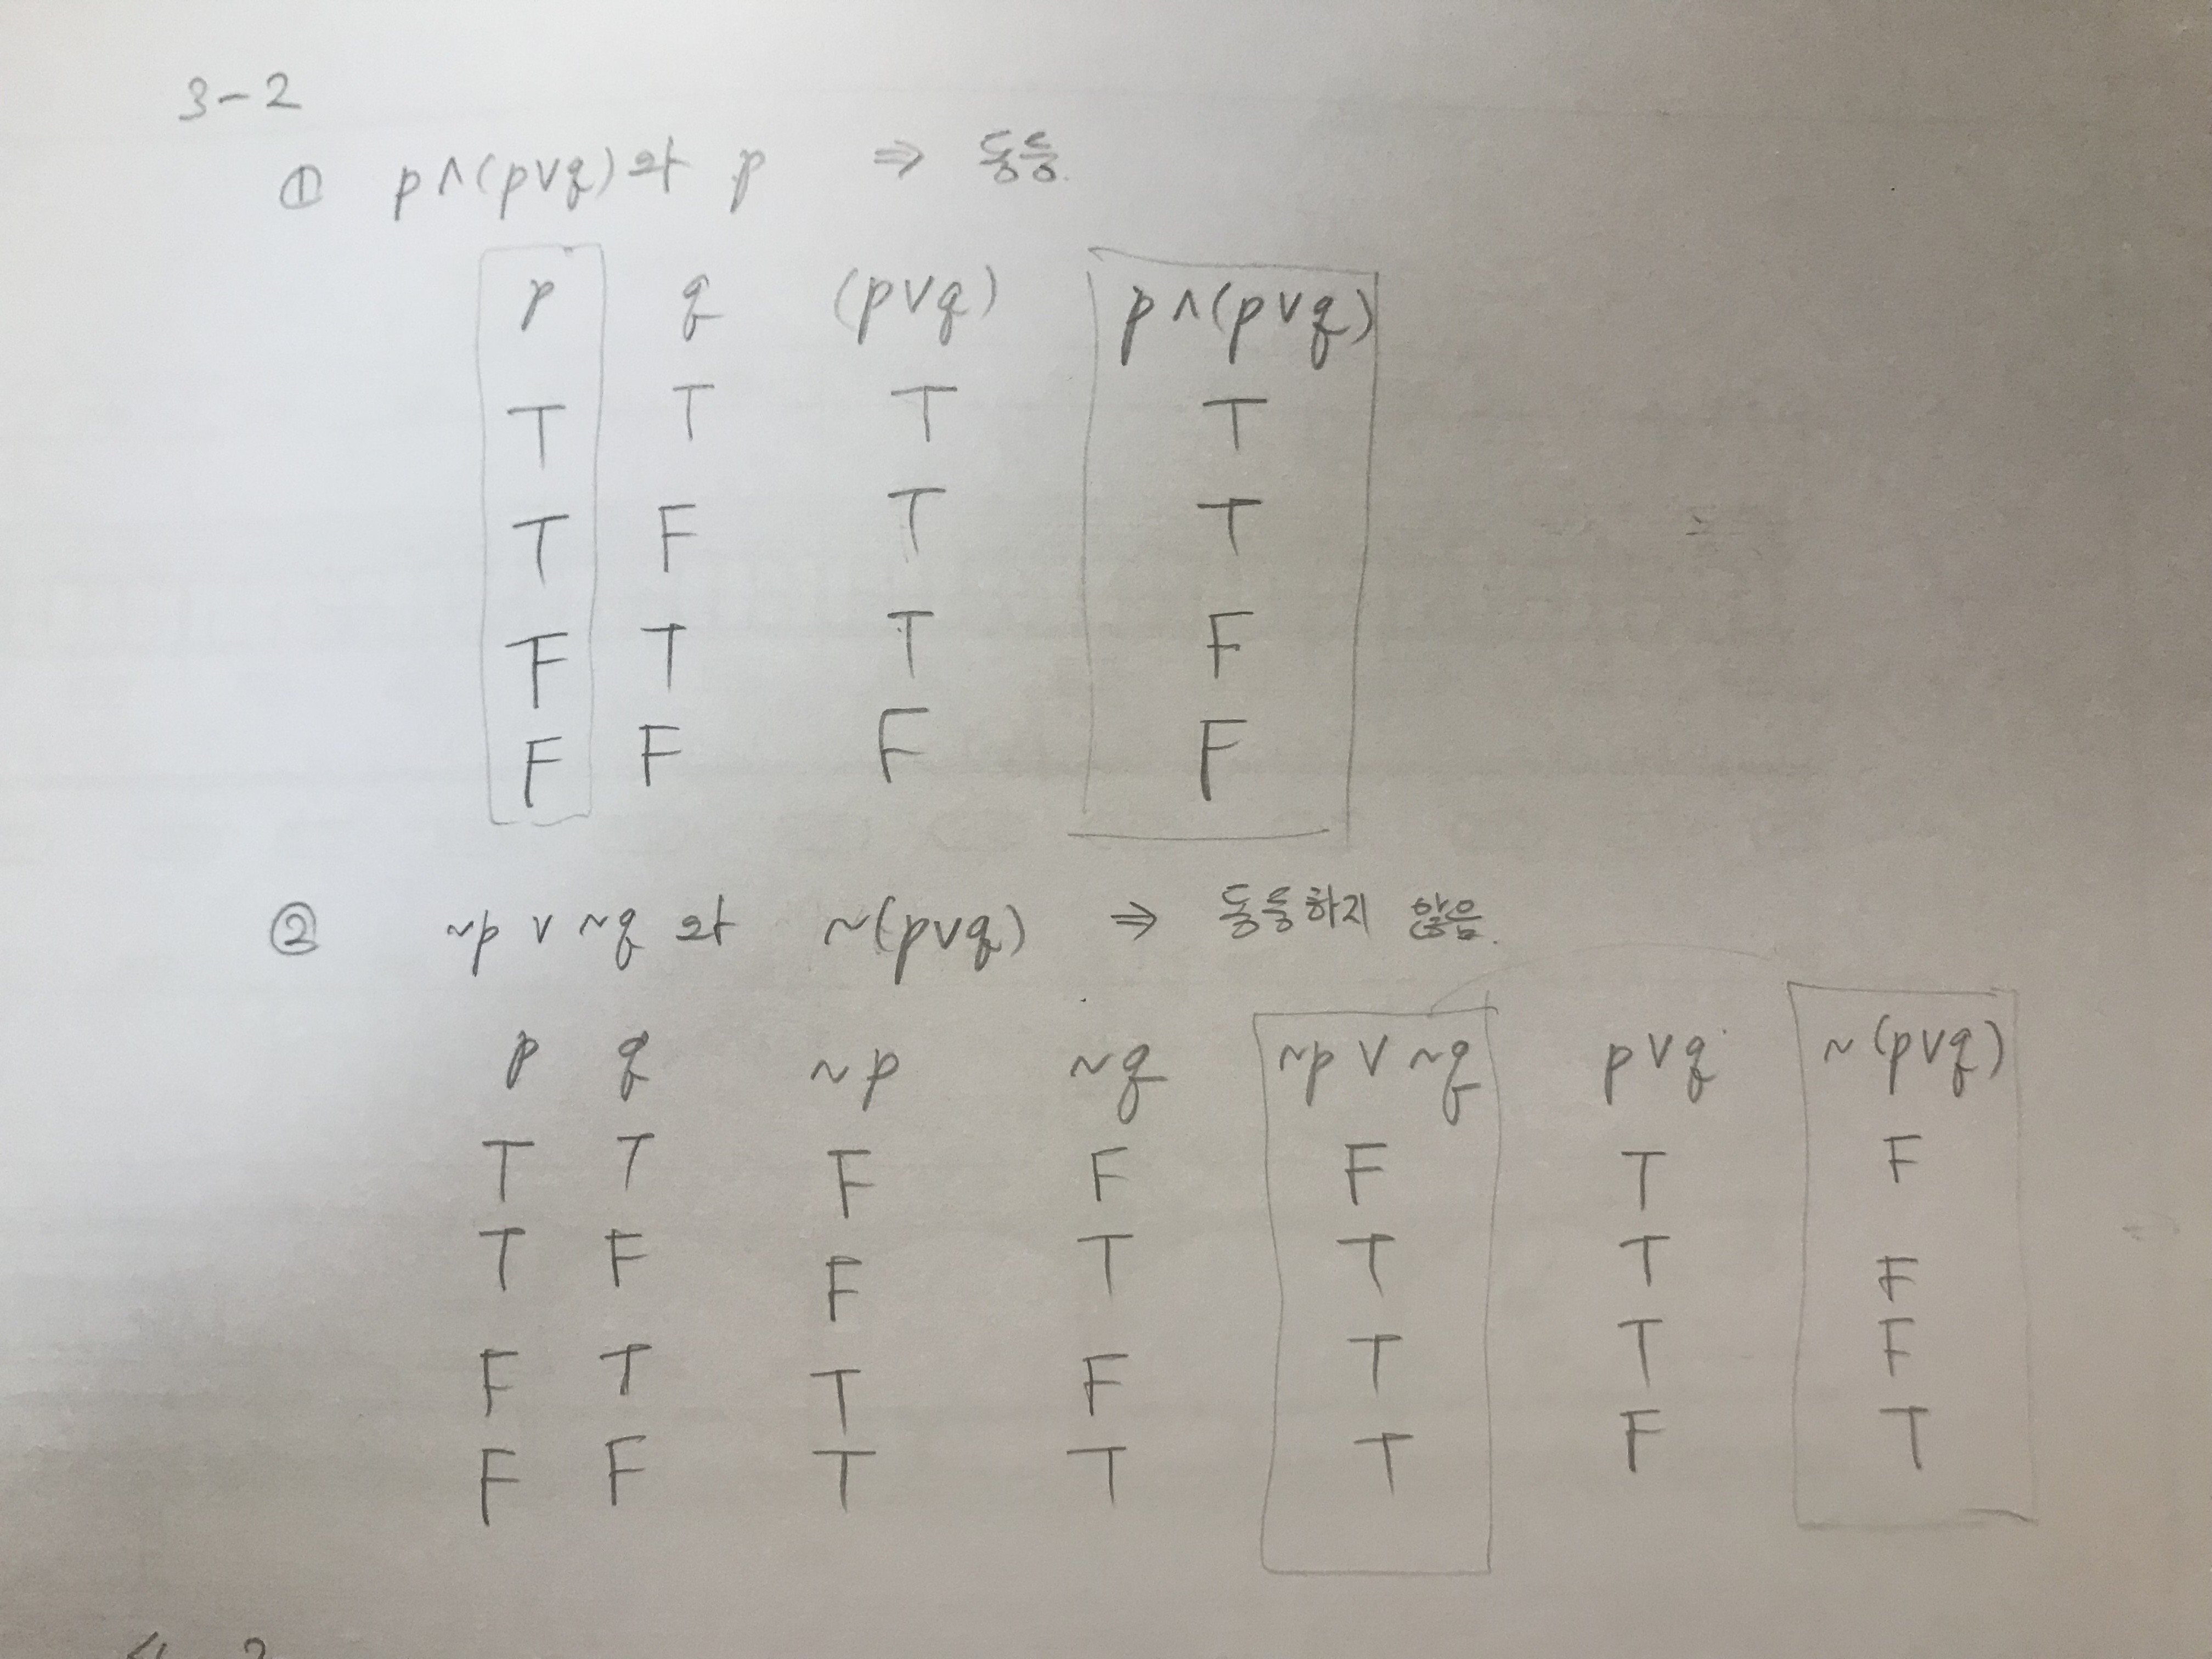 3-2
① p∧(p∨q)와 p ⇒ 동등.
p q (p∨q) p∧(p∨q)
T T T T
T F T T
F T T F
F F F F
② ~p ∨ ~q 와 ~(p∨q) ⇒ 동등하지 않음.
p q ~p ~q ~p ∨ ~q p∨q ~(p∨q)
T T F F F T F
T F F T T T F
F T T F T T F
F F T T T F T